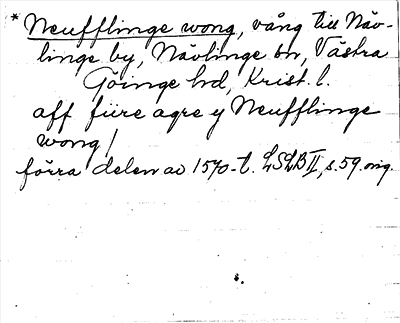 * Neufflinge wong, vång till Näv-
linge by, Nävlinge sn, Västra
Göinge hd, Krist. l.
aff fiire agre y Neufflinge
wong /
förra delen av 1570-t. LSLB II, s. 59. orig.
s.